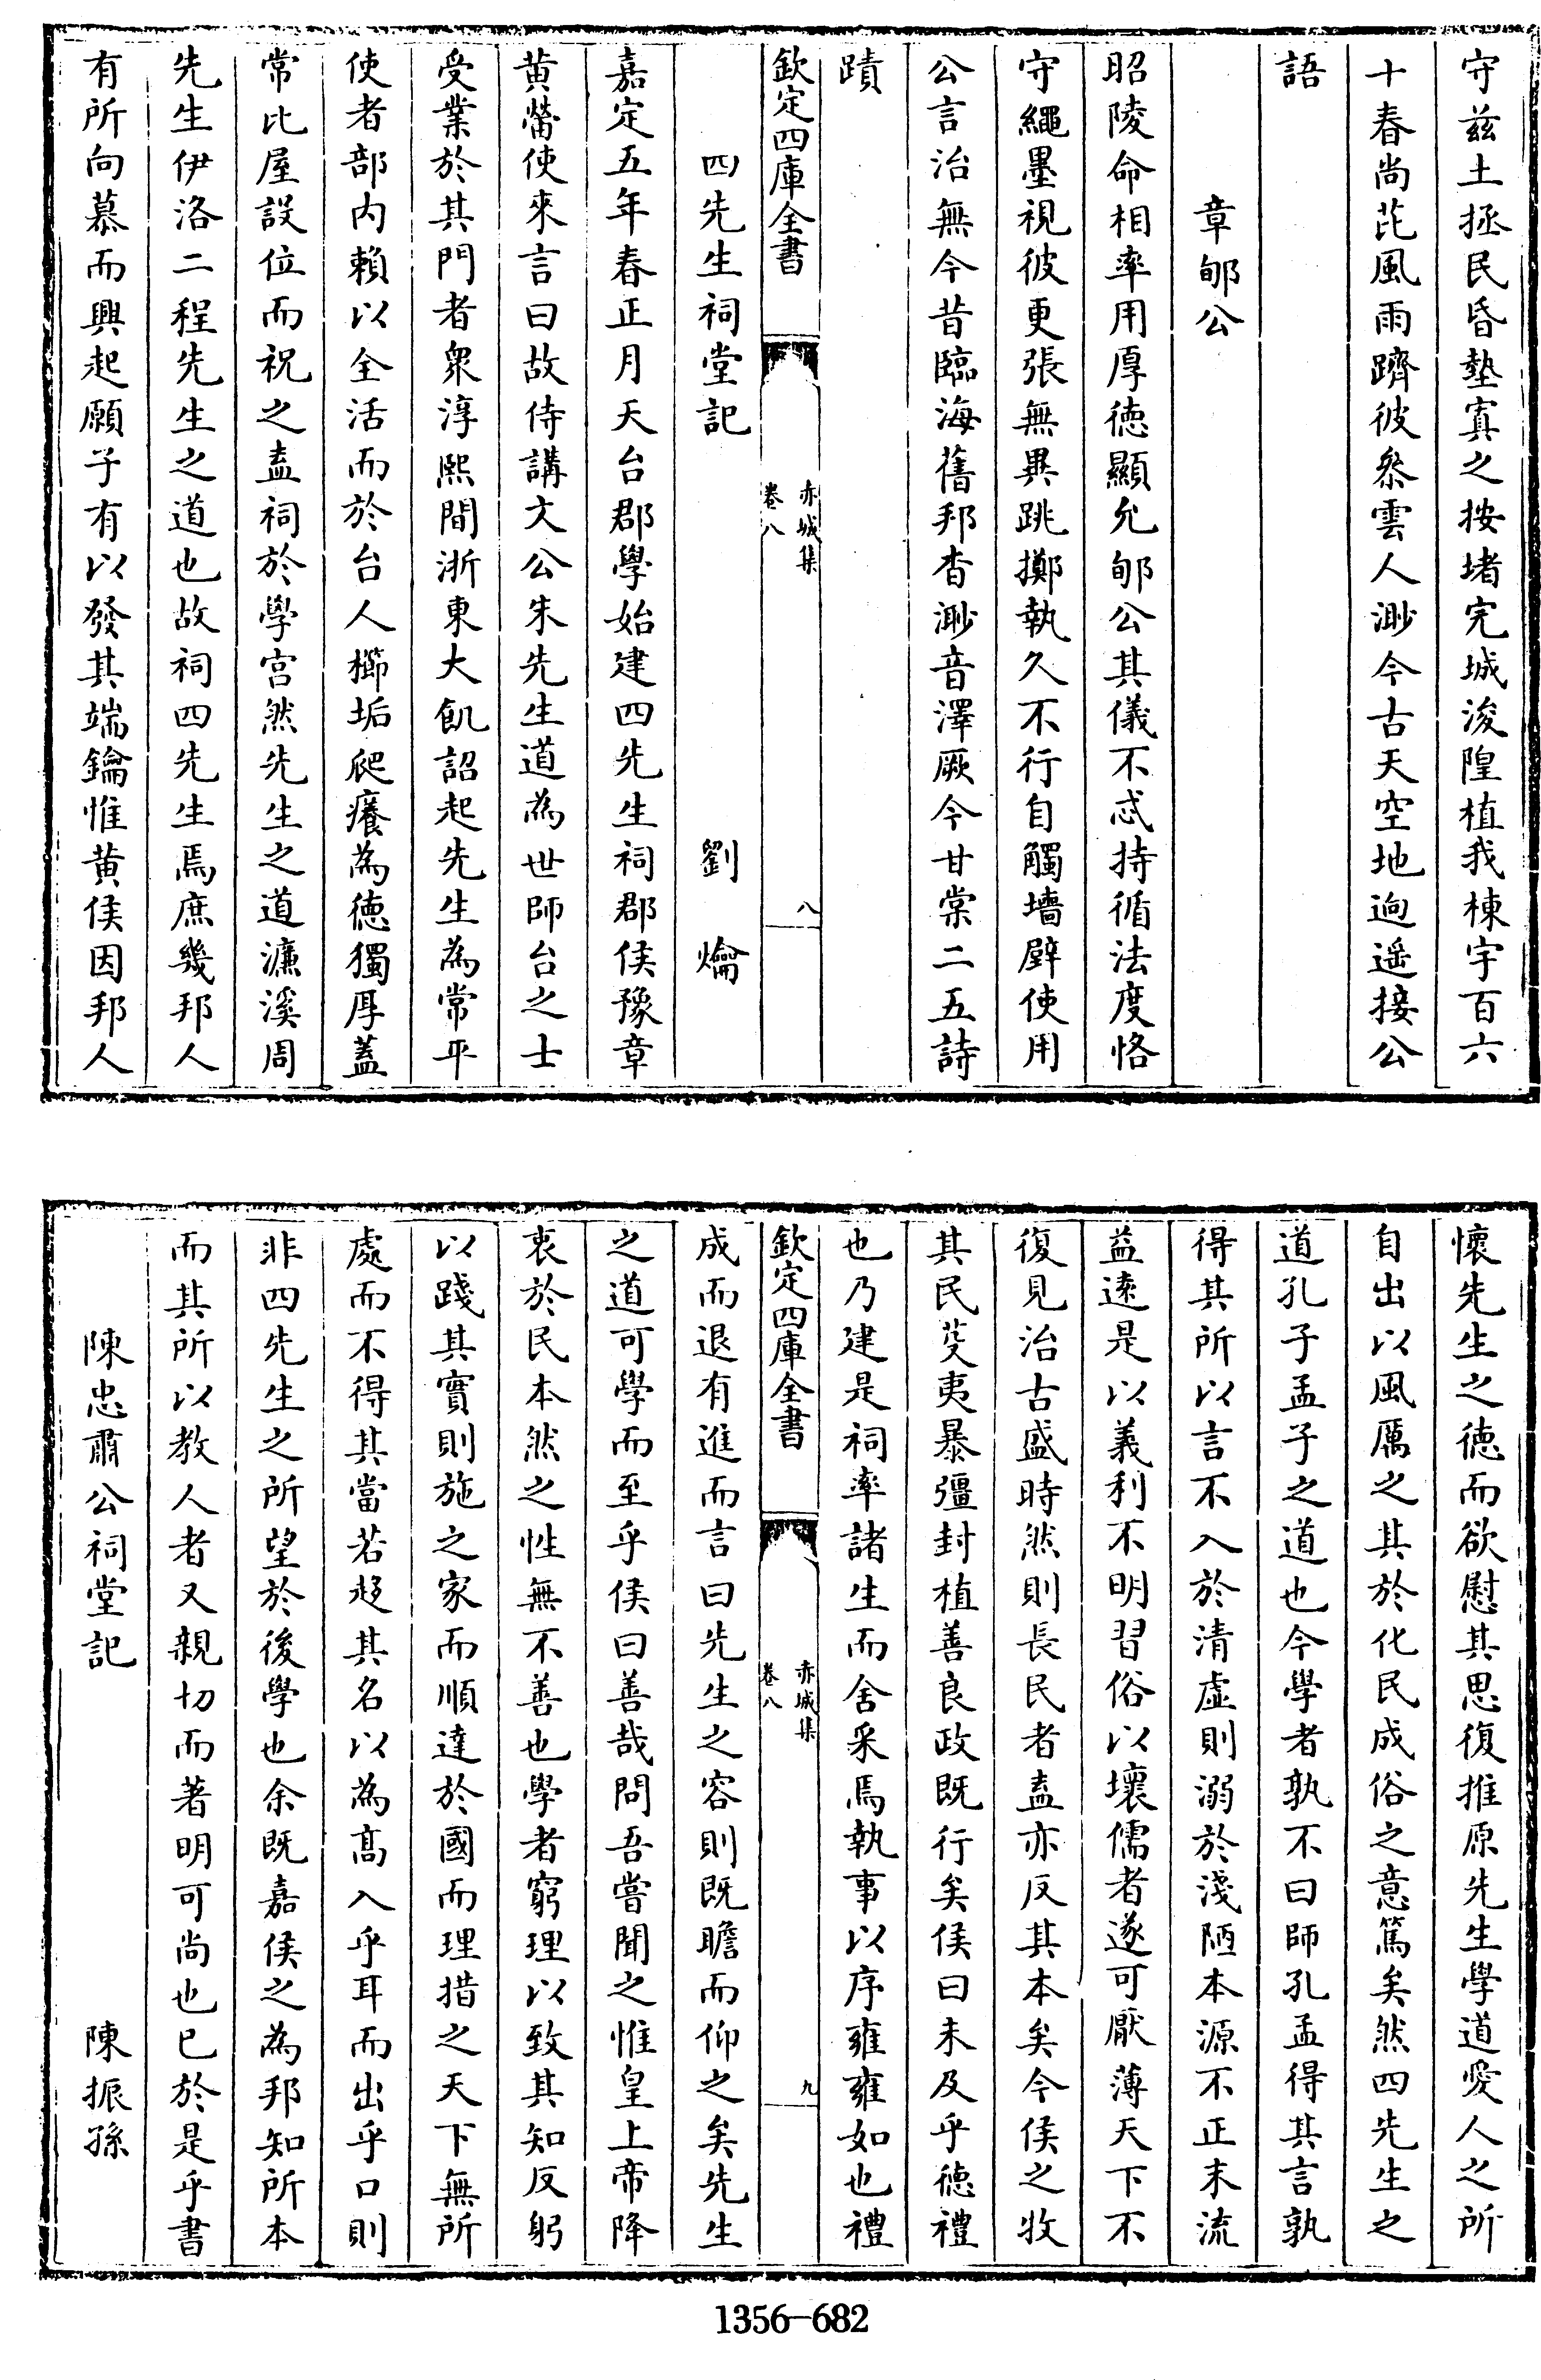 守兹土拯民昏墊寘之按堵完城浚隍植我棟宇百六
十春尚芘風雨躋彼叅雲人渺今古天空地迥遥接公
語
章郇公
昭陵命相率用厚徳顯允郇公其儀不忒持循法度恪
守繩墨視彼更張無異跳擲執久不行自觸墻壁使用
公言治無今昔臨海舊邦杳渺音澤厥今甘棠二五詩
蹟
欽定四庫全書
赤城集
卷八
八
四先生祠堂記 劉爚
嘉定五年春正月天台郡學始建四先生祠郡侯豫章
黄㽦使來言曰故侍講文公朱先生道為世師台之士
受業於其門者衆淳熙間浙東大飢詔起先生為常平
使者部内賴以全活而於台人櫛垢爬癢為徳獨厚蓋
常比屋設位而祝之盍祠於學宫然先生之道濂溪周
先生伊洛二程先生之道也故祠四先生焉庶幾邦人
有所向慕而興起願子有以發其端鑰惟黄侯因邦人
懷先生之徳而欲慰其思復推原先生學道愛人之所
自出以風厲之其於化民成俗之意篤矣然四先生之
道孔子孟子之道也今學者孰不曰師孔孟得其言孰
得其所以言不入於清虛則溺於淺陋本源不正末流
益逺是以義利不明習俗以壞儒者遂可厭薄天下不
復見治古盛時然則長民者盍亦反其本矣今侯之牧
其民芟夷暴彊封植善良政既行矣侯曰未及乎徳禮
也乃建是祠率諸生而舍采焉執事以序雍雍如也禮
欽定四庫全書
赤城集
卷八
九
成而退有進而言曰先生之容則既瞻而仰之矣先生
之道可學而至乎侯曰善哉問吾嘗聞之惟皇上帝降
衷於民本然之性無不善也學者窮理以致其知反躬
以踐其實則施之家而順達於國而理措之天下無所
處而不得其當若趍其名以為髙入乎耳而出乎口則
非四先生之所望於後學也余既嘉侯之為邦知所本
而其所以教人者又親切而著明可尚也已於是乎書
陳忠肅公祠堂記 陳振孫
1356-682